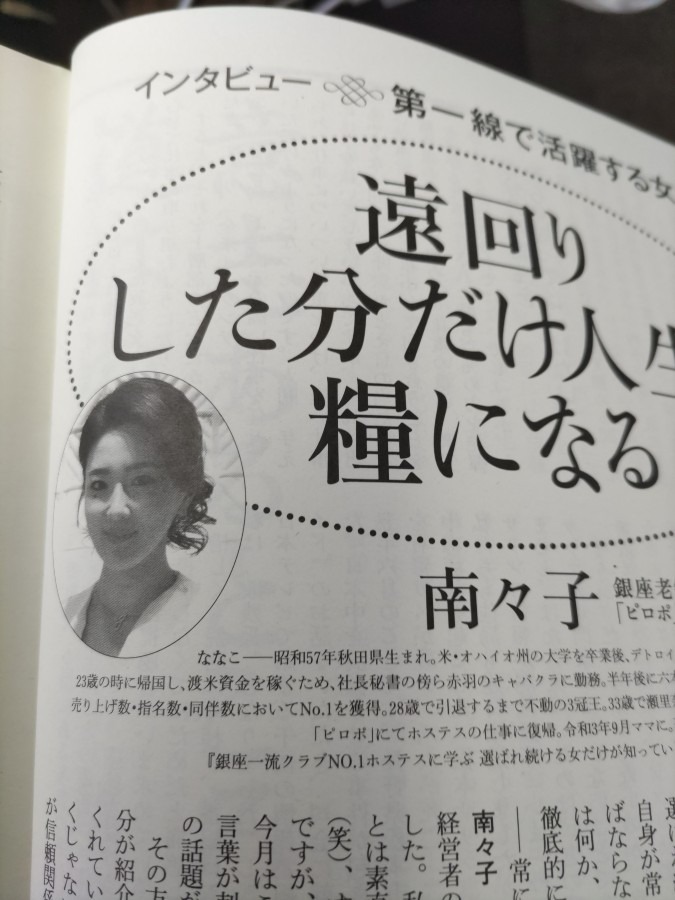 インタビュー 第一線で活躍する女
遠回り
した分だけ人生
糧になる
南々子
銀座老
「ピロポ」
ななこ──昭和57年秋田県生まれ。米・オハイオ州の大学を卒業後、デトロイ
23歳の時に帰国し、渡米資金を稼ぐため、社長秘書の傍ら赤羽のキャバクラに勤務。半年後に六本
売り上げ数・指名数・同伴数においてNo.1を獲得。28歳で引退するまで不動の3冠王。33歳で瀬里
「ピロポ」にてホステスの仕事に復帰。令和3年9月ママに。
『銀座一流クラブNO.1ホステスに学ぶ 選ばれ続ける女だけが知ってい
自身が常
ばならな
は何か、
徹底的に
── 常に
南々子
経営者の
した。私
とは素
(笑)、
ですが、
今月はこ
言葉が刺
の話題が
その方
分が紹介
くれてい
くじゃな
が信頼関係